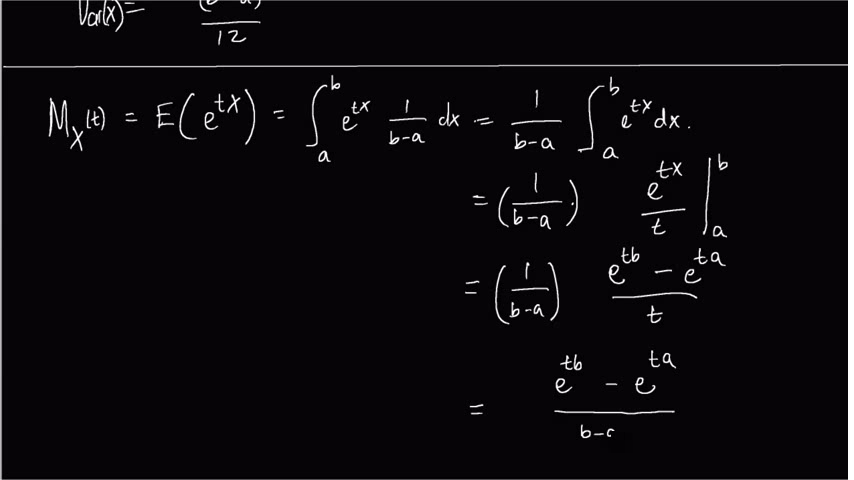 Var(x) = (b-a)² / 12
M_X(t) = E(e^{tX}) = ∫_a^b e^{tx} 1/(b-a) dx = 1/(b-a) ∫_a^b e^{tx} dx.
= (1/(b-a)) · e^{tx}/t |_a^b
= (1/(b-a)) (e^{tb} - e^{ta})/t
= (e^{tb} - e^{ta}) / b-a